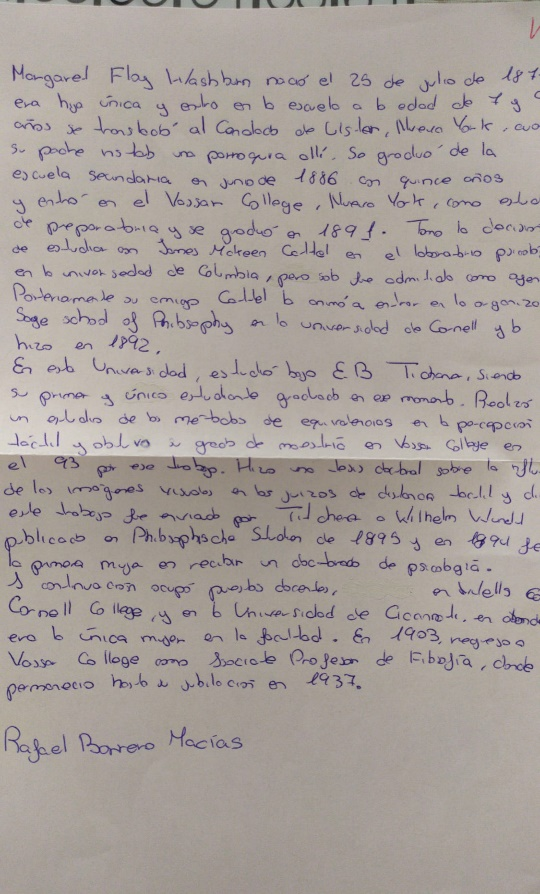 Margaret Floy Washburn nació el 25 de julio de 187
era hija única y entro en la escuela a la edad de 7 y 9
años se transladó al Condado de Ulster, Nueva York,
su padre una parroquia allí. Se graduó de la
escuela secundaria en junio de 1886 con quince años
y entró en el Vassar College, Nueva York, como
de preparatoria y se graduó en 1891. Tomo la decision
de estudiar con James Mckeen Cattel en el laboratorio
en la universidad de Columbia, pero solo fue admitida como
su amigo Cattel la animó a entrar en la
Sage school of Philosophy en la universidad de Cornell y lo
hizo en 1892.
En esta Universidad, estudió bajo EB Tichener, siendo
su primer y único estudiante graduado en ese momento. Realizó
un estudio de los metodos de equivalencias en la percepcion
táctil y obtuvo su grado de maestría en Vassar College en
el 93 por ese trabajo. Hizo una tesis doctoral sobre la
de los imágenes visuales en los juizos de distancia tactil y
este trabajo fue enviado por Titchener a Wilhelm Wundt
publicado en Philosophische Studien de 1895 y en 1894 fue
la primera mujer en recibir un doctorado de psicología.
A continuación ocupó puestos docentes, en Wells
Cornell College, y en la Universidad de en donde
era la única mujer en la facultad. En 1903, regreso a
Vassar College como Associate Profesor de Filosofía, donde
permanecio hasta su jubilación en 1937.
Rafael Borrero Macías